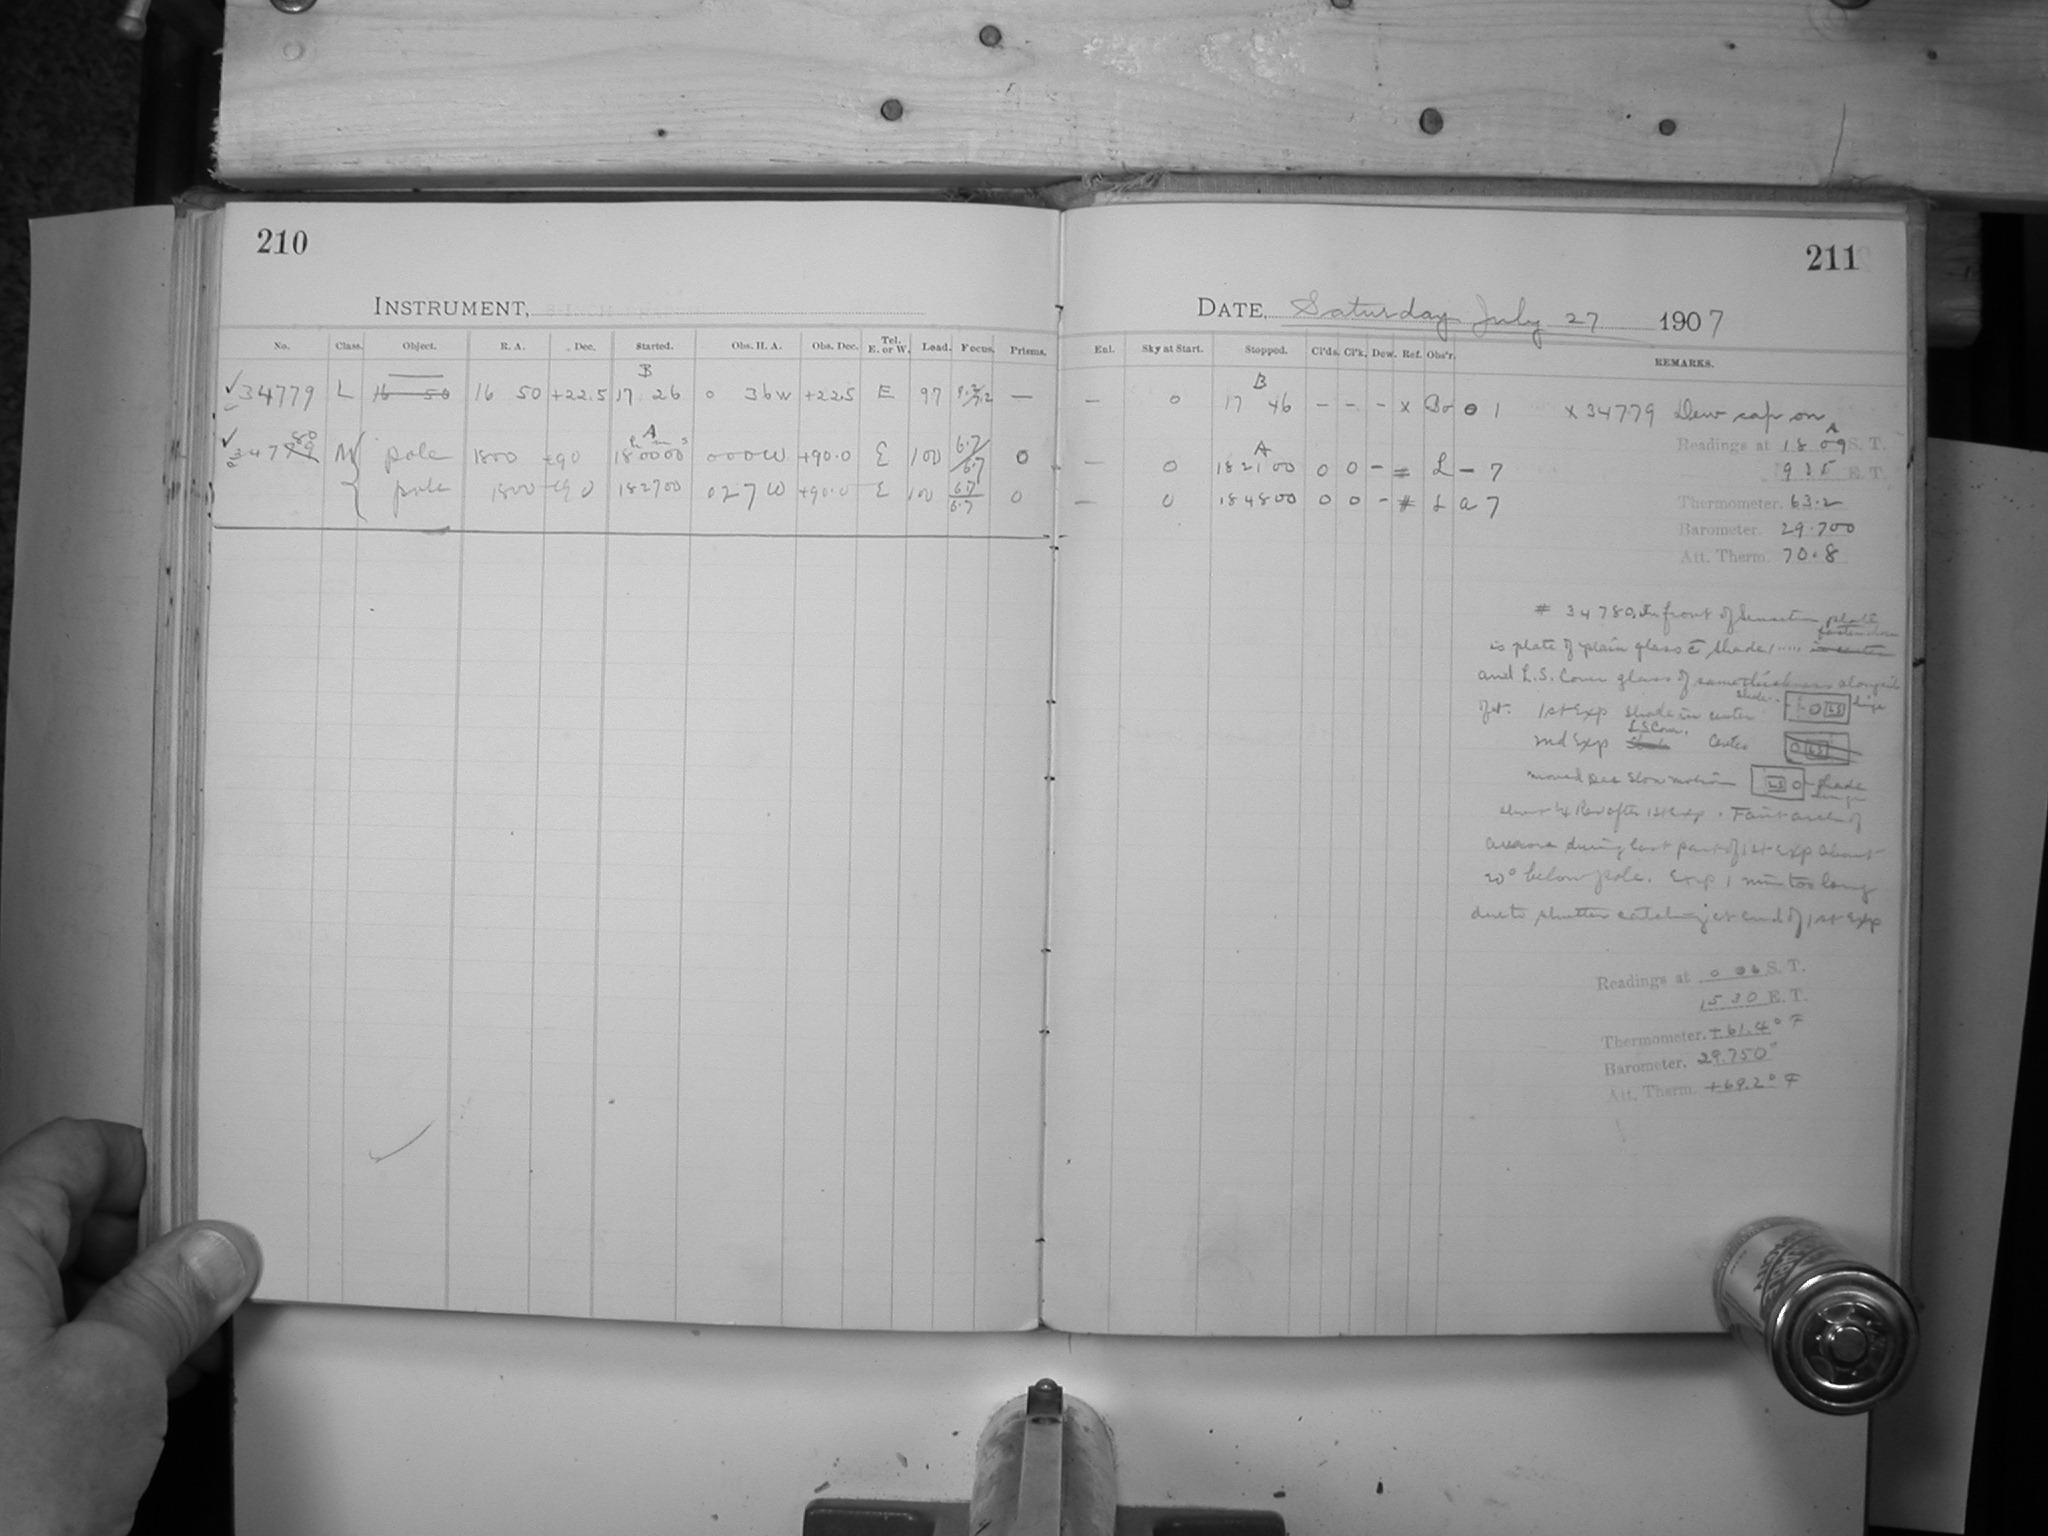 210
211
INSTRUMENT,
DATE, Saturday July 27 1907
No. Class. Object. R. A. Dec. Started. Obs. H. A. Obs. Dec. Tel. E. or W. Load. Focus. Prisms.
Enl. Sky at Start. Stopped. Cl'ds. Cl'k. Dew. Ref. Obs'r. REMARKS.
B
✓34779 L 16 50 16 50 +22.5 17 26 0 36W +22.5 E 97 —
B
— 0 17 46 - - - x Bo 1 x 34779 Dew cap on
A
h m s
80
✓34779 M pole 1800 +90 180000 000W +90.0 E 100 6.7/6.7 0
A
— 0 182100 0 0 - = L - 7
pole 1800 +90 182700 027W +90.0 E 100 6.7/6.7 0
— 0 184800 0 0 - # L a 7
A
Readings at 18 09 S. T.
9 35 E. T.
Thermometer. 63.2
Barometer. 29.700
Att. Therm. 70.8
# 34780. In front of Sensitive plate
is plate of plain glass c̄ shade
and L.S. Cover glass of same thickness alongside
of it. 1st Exp Shade in center
L S Cover.
2nd Exp Center
moved Dec Slow motion shade
about 1/4 Rev after 1st Exp. Faint arch of
aurora during last part of 1st Exp about
20° below pole. Exp 1 min too long
due to shutter catching at end of 1st Exp
Readings at 0 06 S. T.
15 30 E. T.
Thermometer. +61.4° F
Barometer. 29.750"
Att. Therm. +69.2° F